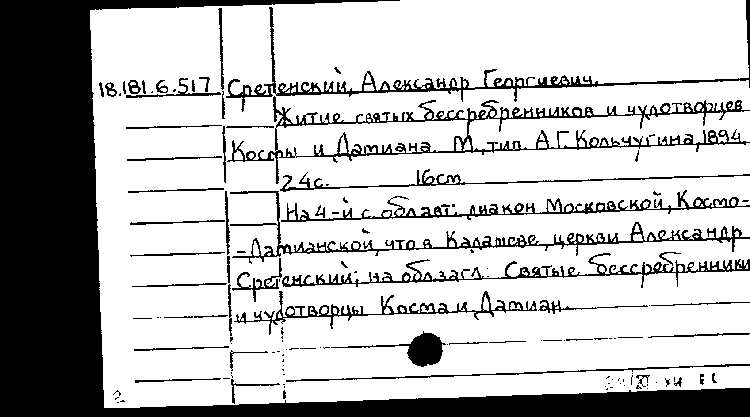 18.181.6.517 Сретенский, Александр Георгиевич.
Житие святых бессребренников и чудотворцев
Космы и Дамиана. М., тип. А.Г. Кольчугина, 1894.
24с. 16см.
На 4-й с. обл. авт: диакон Московской, Космо-
-Дамианской, что в Кадашеве, церкви Александр
Сретенский; на обл. загл: Святые бессребренники
и чудотворцы Косма и Дамиан.
2